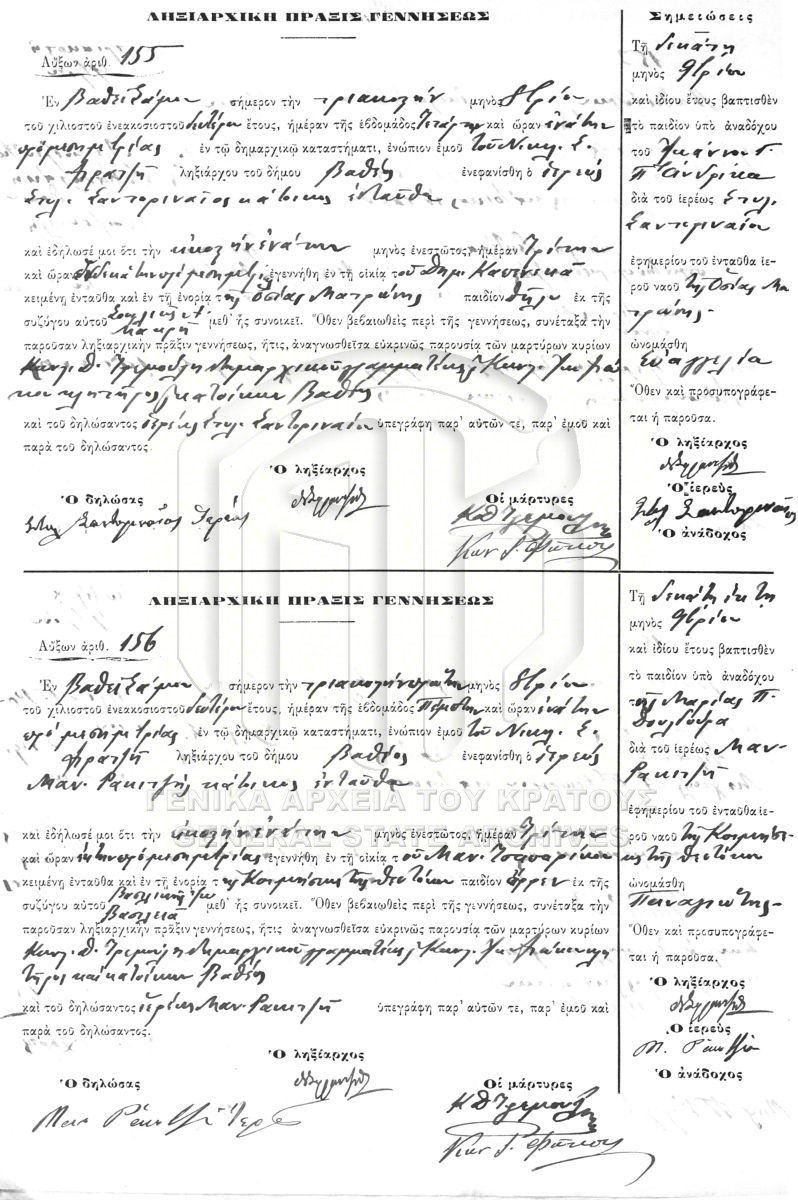 ΛΗΞΙΑΡΧΙΚΗ ΠΡΑΞΙΣ ΓΕΝΝΗΣΕΩΣ
Αὔξων ἀριθ. 155
Ἐν Βαθεῖ Σάμου σήμερον τὴν τριακοστὴν μηνὸς 8βρίου
τοῦ χιλιοστοῦ ἐνεακοσιοστοῦ δευτέρου ἔτους, ἡμέραν τῆς ἑβδομάδος Τετάρτην καὶ ὥραν ἐνάτην
πρὸ μεσημβρίας ἐν τῷ δημαρχικῷ καταστήματι, ἐνώπιον ἐμοῦ τοῦ Νικλ. Σ.
ληξιάρχου τοῦ δήμου Βαθέος ἐνεφανίσθη ὁ ἱερεὺς
Στυλ. Σαντοριναῖος κάτοικος ἐνταῦθα
καὶ ἐδήλωσέ μοι ὅτι τὴν εἰκοστὴν ἐνάτην μηνὸς ἐνεστῶτος, ἡμέραν Τρίτην
καὶ ὥραν δωδεκάτην πρὸ μεσημβρίας ἐγεννήθη ἐν τῇ οἰκίᾳ τοῦ Δημ.
κειμένῃ ἐνταῦθα καὶ ἐν τῇ ἐνορίᾳ τῆς Ὁσίας Ματρώνης παιδίον θῆλυ ἐκ τῆς
συζύγου αὐτοῦ μεθ᾽ ἧς συνοικεῖ. Ὅθεν βεβαιωθεὶς περὶ τῆς γεννήσεως, συνέταξα τὴν
παροῦσαν ληξιαρχικὴν πρᾶξιν γεννήσεως, ἥτις, ἀναγνωσθεῖσα εὐκρινῶς παρουσίᾳ τῶν μαρτύρων κυρίων
Κωνς. Θ. Τρεμούλη δημαρχικοῦ γραμματέως Κωνς.
κλητῆρος κατοίκων Βαθέος
καὶ τοῦ δηλώσαντος ἱερέως Στυλ. Σαντοριναίου ὑπεγράφη παρ᾽ αὐτῶν τε, παρ᾽ ἐμοῦ καὶ
παρὰ τοῦ δηλώσαντος
Ὁ ληξίαρχος
Ὁ δηλώσας
Οἱ μάρτυρες
Στυλ Σαντοριναῖος Ἱερεὺς
Σημειώσεις
Τῇ δεκάτῃ
μηνὸς 9βρίου
καὶ ἰδίου ἔτους βαπτισθὲν
τὸ παιδίον ὑπὸ ἀναδόχου
τοῦ
διὰ τοῦ ἱερέως Στυλ.
Σαντοριναίου
ἐφημερίου τοῦ ἐνταῦθα ἱε-
ροῦ ναοῦ τῆς Ὁσίας Μα
τρώνης
ὠνομάσθη
Εὐαγγελία
Ὅθεν καὶ προσυπογράφε-
ται ἡ παροῦσα.
Ὁ ληξίαρχος
Ὁ ἱερεὺς
Στυλ Σαντοριναῖος
Ὁ ἀνάδοχος
ΛΗΞΙΑΡΧΙΚΗ ΠΡΑΞΙΣ ΓΕΝΝΗΣΕΩΣ
Αὔξων ἀριθ. 156
Ἐν Βαθεῖ Σάμου σήμερον τὴν τριακοστὴν πρώτην μηνὸς 8βρίου
τοῦ χιλιοστοῦ ἐνεακοσιοστοῦ δευτέρου ἔτους, ἡμέραν τῆς ἑβδομάδος Πέμπτην καὶ ὥραν ἐνάτην
πρὸ μεσημβρίας ἐν τῷ δημαρχικῷ καταστήματι, ἐνώπιον ἐμοῦ τοῦ Νικλ. Σ.
ληξιάρχου τοῦ δήμου Βαθέος ἐνεφανίσθη ὁ ἱερεὺς
Μαν. Ρακιτζῆς κάτοικος ἐνταῦθα
ΓΕΝΙΚΑ ΑΡΧΕΙΑ ΤΟΥ ΚΡΑΤΟΥΣ
GENERAL STATE ARCHIVES
καὶ ἐδήλωσέ μοι ὅτι τὴν εἰκοστὴν ἐνάτην μηνὸς ἐνεστῶτος, ἡμέραν Τρίτην
καὶ ὥραν ἕκτην πρὸ μεσημβρίας ἐγεννήθη ἐν τῇ οἰκίᾳ τοῦ Μαν.
κειμένῃ ἐνταῦθα καὶ ἐν τῇ ἐνορίᾳ τῆς Κοιμήσεως τῆς Θεοτόκου παιδίον ἄρρεν ἐκ τῆς
συζύγου αὐτοῦ μεθ᾽ ἧς συνοικεῖ. Ὅθεν βεβαιωθεὶς περὶ τῆς γεννήσεως, συνέταξα τὴν
παροῦσαν ληξιαρχικὴν πρᾶξιν γεννήσεως, ἥτις ἀναγνωσθεῖσα εὐκρινῶς παρουσίᾳ τῶν μαρτύρων κυρίων
Κωνς. Θ. Τρεμούλη δημαρχικοῦ γραμματέως Κωνς. κλη
τῆρος καὶ κατοίκων Βαθέος
καὶ τοῦ δηλώσαντος ἱερέως Μαν. Ρακιτζῆ ὑπεγράφη παρ᾽ αὐτῶν τε, παρ᾽ ἐμοῦ καὶ
παρὰ τοῦ δηλώσαντος.
Ὁ ληξίαρχος
Ὁ δηλώσας
Οἱ μάρτυρες
Τῇ δεκάτῃ ἕκτῃ
μηνὸς 9βρίου
καὶ ἰδίου ἔτους βαπτισθὲν
τὸ παιδίον ὑπὸ ἀναδόχου
τῆς Μαρίας Π.
διὰ τοῦ ἱερέως Μαν.
Ρακιτζῆ
ἐφημερίου τοῦ ἐνταῦθα ἱε-
ροῦ ναοῦ τῆς Κοιμήσε-
ως τῆς Θεοτόκου
ὠνομάσθη
Παναγιώτης
Ὅθεν καὶ προσυπογράφε-
ται ἡ παροῦσα.
Ὁ ληξίαρχος
Ὁ ἱερεὺς
Ὁ ἀνάδοχος